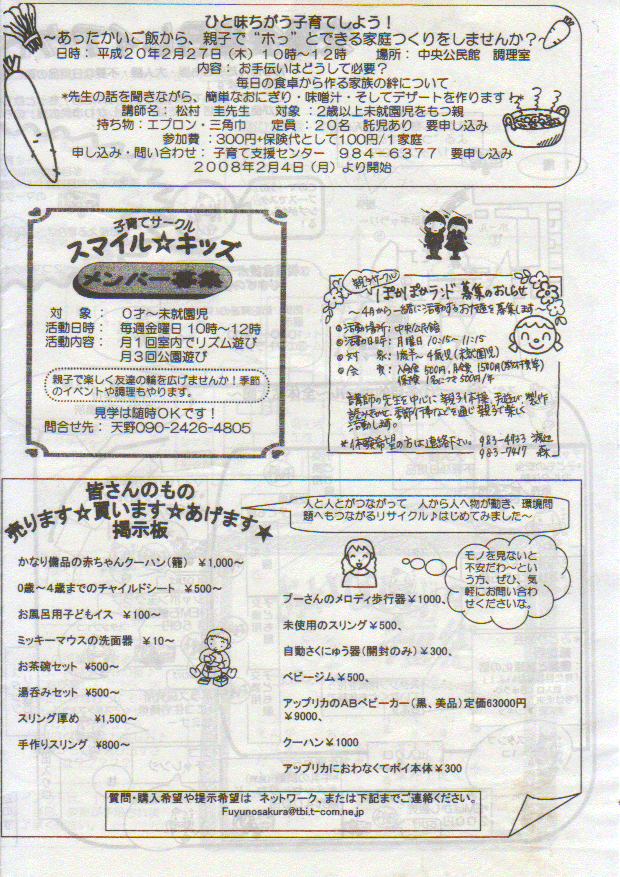 ひと味ちがう子育てしよう！
～あったかいご飯から、親子で“ホっ”とできる家庭つくりをしませんか？～
日時： 平成20年2月27日（木）10時～12時　場所： 中央公民館　調理室
内容： お手伝いはどうして必要？
毎日の食卓から作る家族の絆について
*先生の話を聞きながら、簡単なおにぎり・味噌汁・そしてデザートを作ります
講師名： 松村　圭先生　対象 ：2歳以上未就園児をもつ親
持ち物：エプロン・三角巾　定員 ：20名　託児あり　要申し込み
参加費 ：300円+保険代として100円/1家庭
申し込み・問い合わせ： 子育て支援センター　984-6377　要申し込み
2008年2月4日（月）より開始
子育てサークル
スマイル☆キッズ
メンバー募集
対　象 ：　0才～未就園児
活動日時：　毎週金曜日 10時～12時
活動内容：　月1回室内でリズム遊び
月3回公園遊び
親子で楽しく友達の輪を広げませんか！季節
のイベントや調理もやります。
見学は随時OKです！
問合せ先：　天野090-2426-4805
親子サークル
ぽかぽかランド 募集のおしらせ
～4月から一緒に活動するお友達を募集します～
◎活動場所： 中央公民館
◎活動日時： 月曜日 10:15～11:15
◎対　象： 1歳半～4歳児（未就園児）
◎会　費： 入会金500円, 月会費1500円
保険 1名につき500円/年
講師の先生を中心に 親子体操, 手遊び, 製作
読みきかせ, 季節行事などを通じ 親子で楽しく
活動します。
*体験希望の方はご連絡下さい。 983-4933 渡辺
983-7417 森
皆さんのもの
売ります☆買います☆あげます★
掲示板
人と人とがつながって　人から人へ物が動き、環境問
題へもつながるリサイクル♪はじめてみました～
モノを見ないと
不安だわ～とい
う方、ぜひ、気
軽にお問い合わ
せくださいな。
かなり備品の赤ちゃんクーハン（籠）　¥1,000～
0歳～4歳までのチャイルドシート　¥500～
お風呂用子どもイス　¥100～
ミッキーマウスの洗面器　¥10～
お茶碗セット　¥500～
湯呑みセット　¥500～
スリング厚め　¥1,500～
手作りスリング　¥800～
プーさんのメロディ歩行器￥1000、
未使用のスリング￥500、
自動さくにゅう器（開封のみ）￥300、
ベビージム￥500、
アップリカのABベビーカー（黒、美品）定価63000円
￥9000、
クーハン￥1000
アップリカにおわなくてポイ本体￥300
質問・購入希望や提示希望は　ネットワーク、または下記までご連絡ください。
Fuyunosakura@tbi.t-com.ne.jp